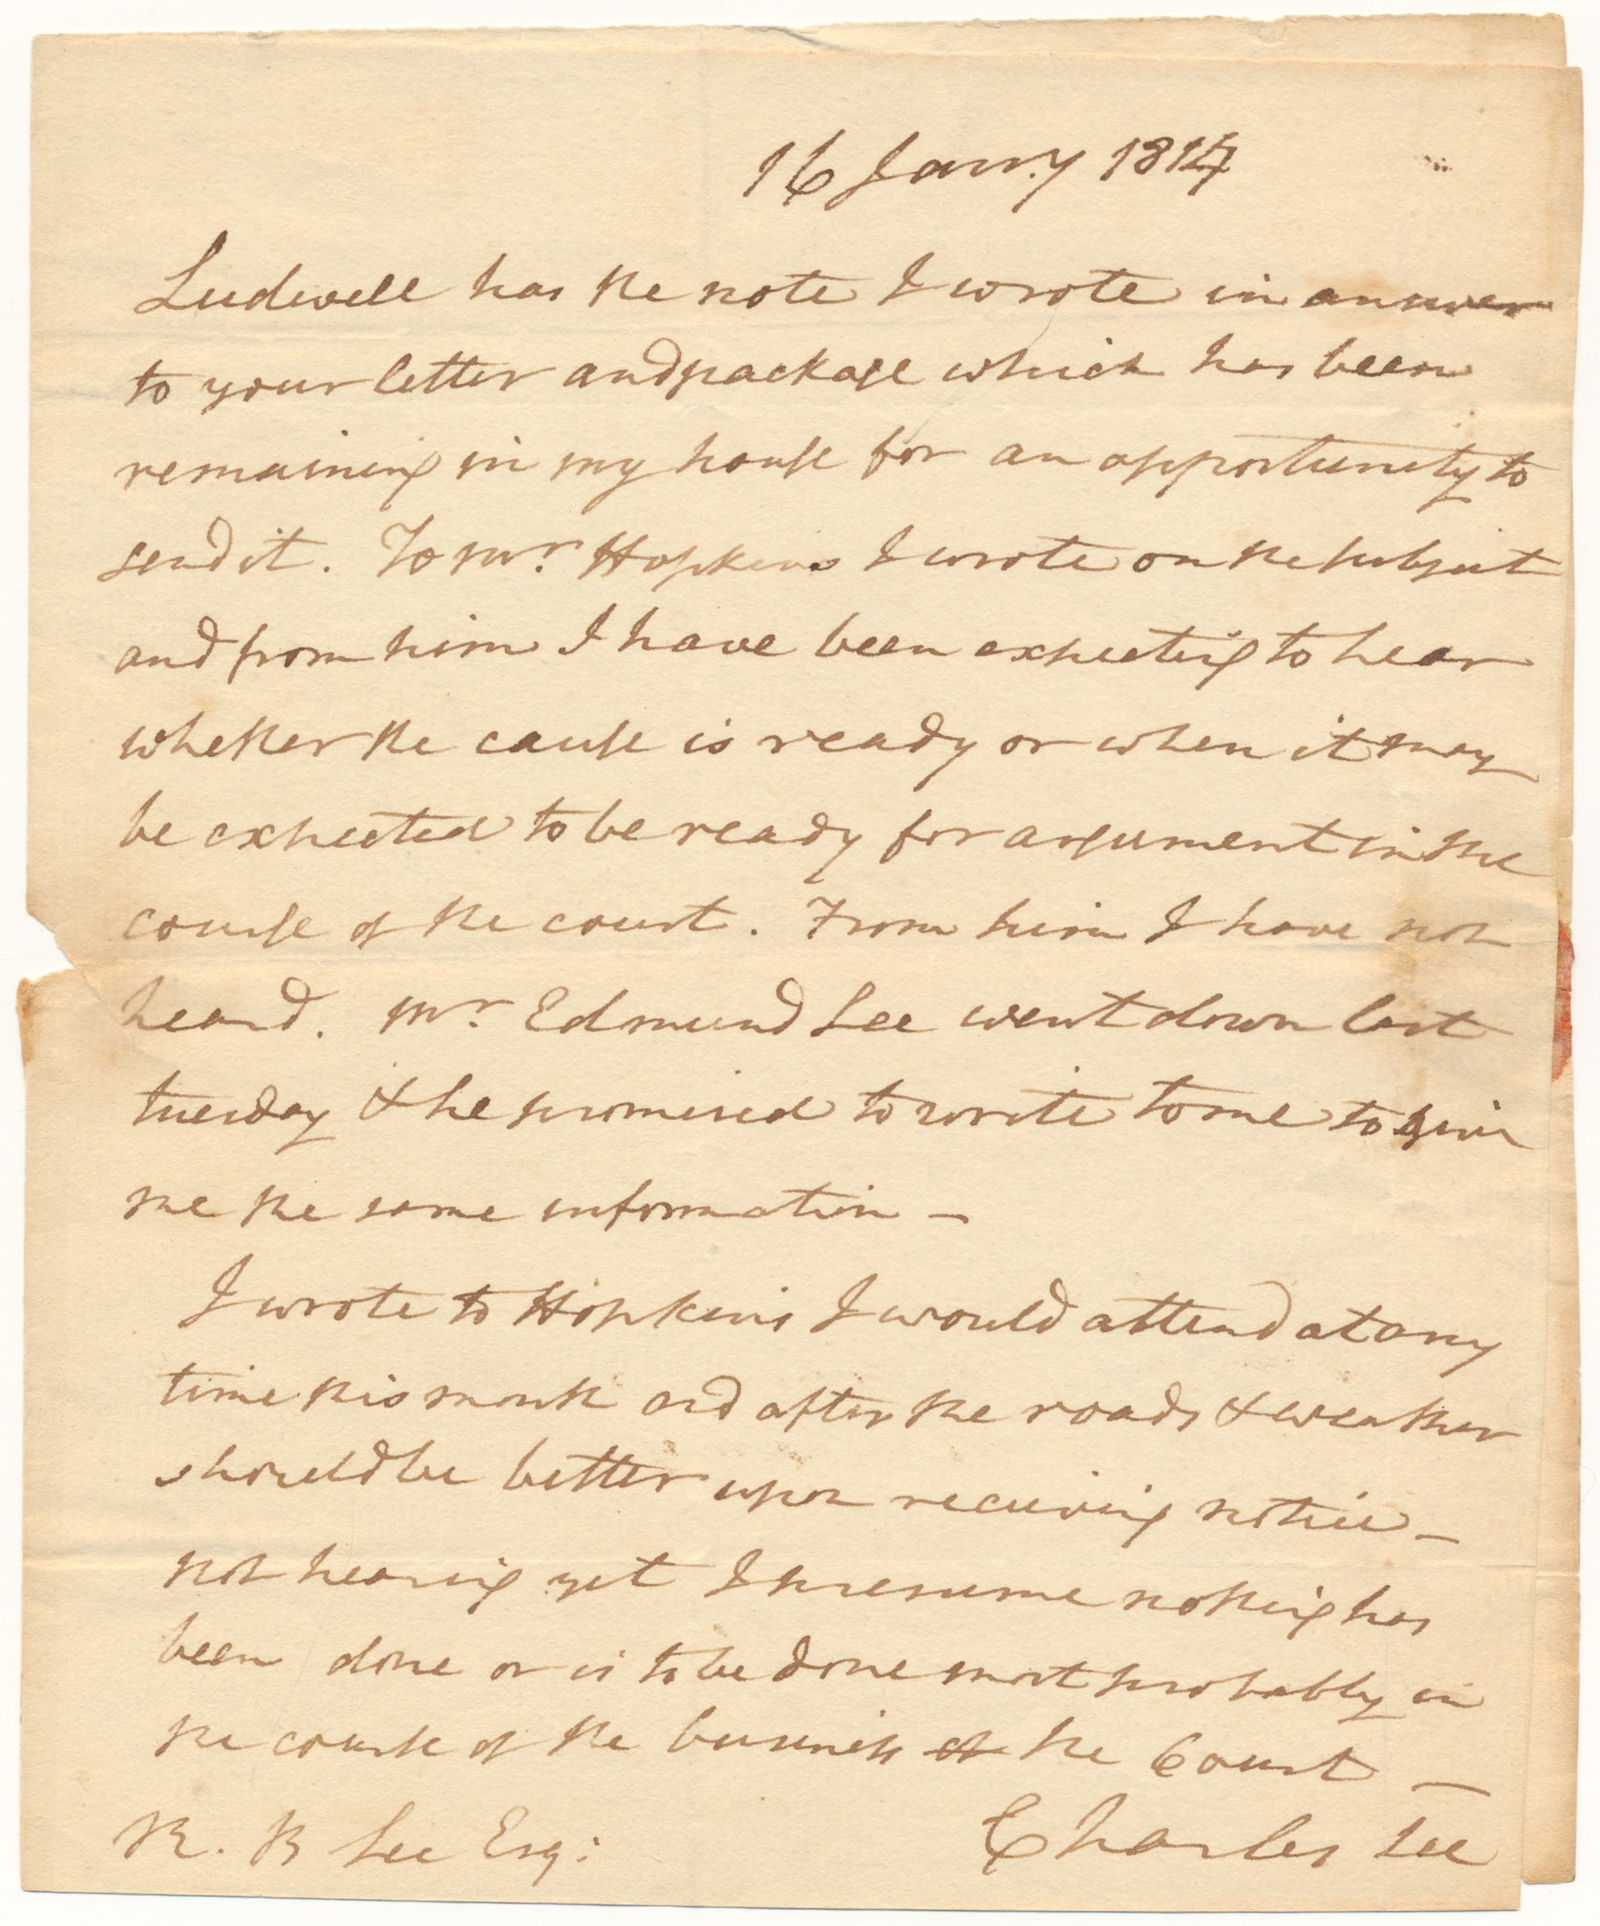 16 Janry 1814
Ludwell has the note I wrote in answer
to your letter and package which has been
remaining in my house for an opportunity to
send it. To Mr. Hopkins I wrote on the subject
and from him I have been expecting to hear
whether the cause is ready or when it may
be expected to be ready for argument in the
course of the court. From him I have not
heard. Mr. Edmund Lee went down last
tuesday & he promised to write to me to give
me the same information —
I wrote to Hopkins I would attend at any
time this month and after the roads & weather
should be better upon receiving notice —
not hearing yet I presume nothing has
been done or is to be done most probably in
the course of the business of the Court —
R. B Lee Esq: Charles Lee